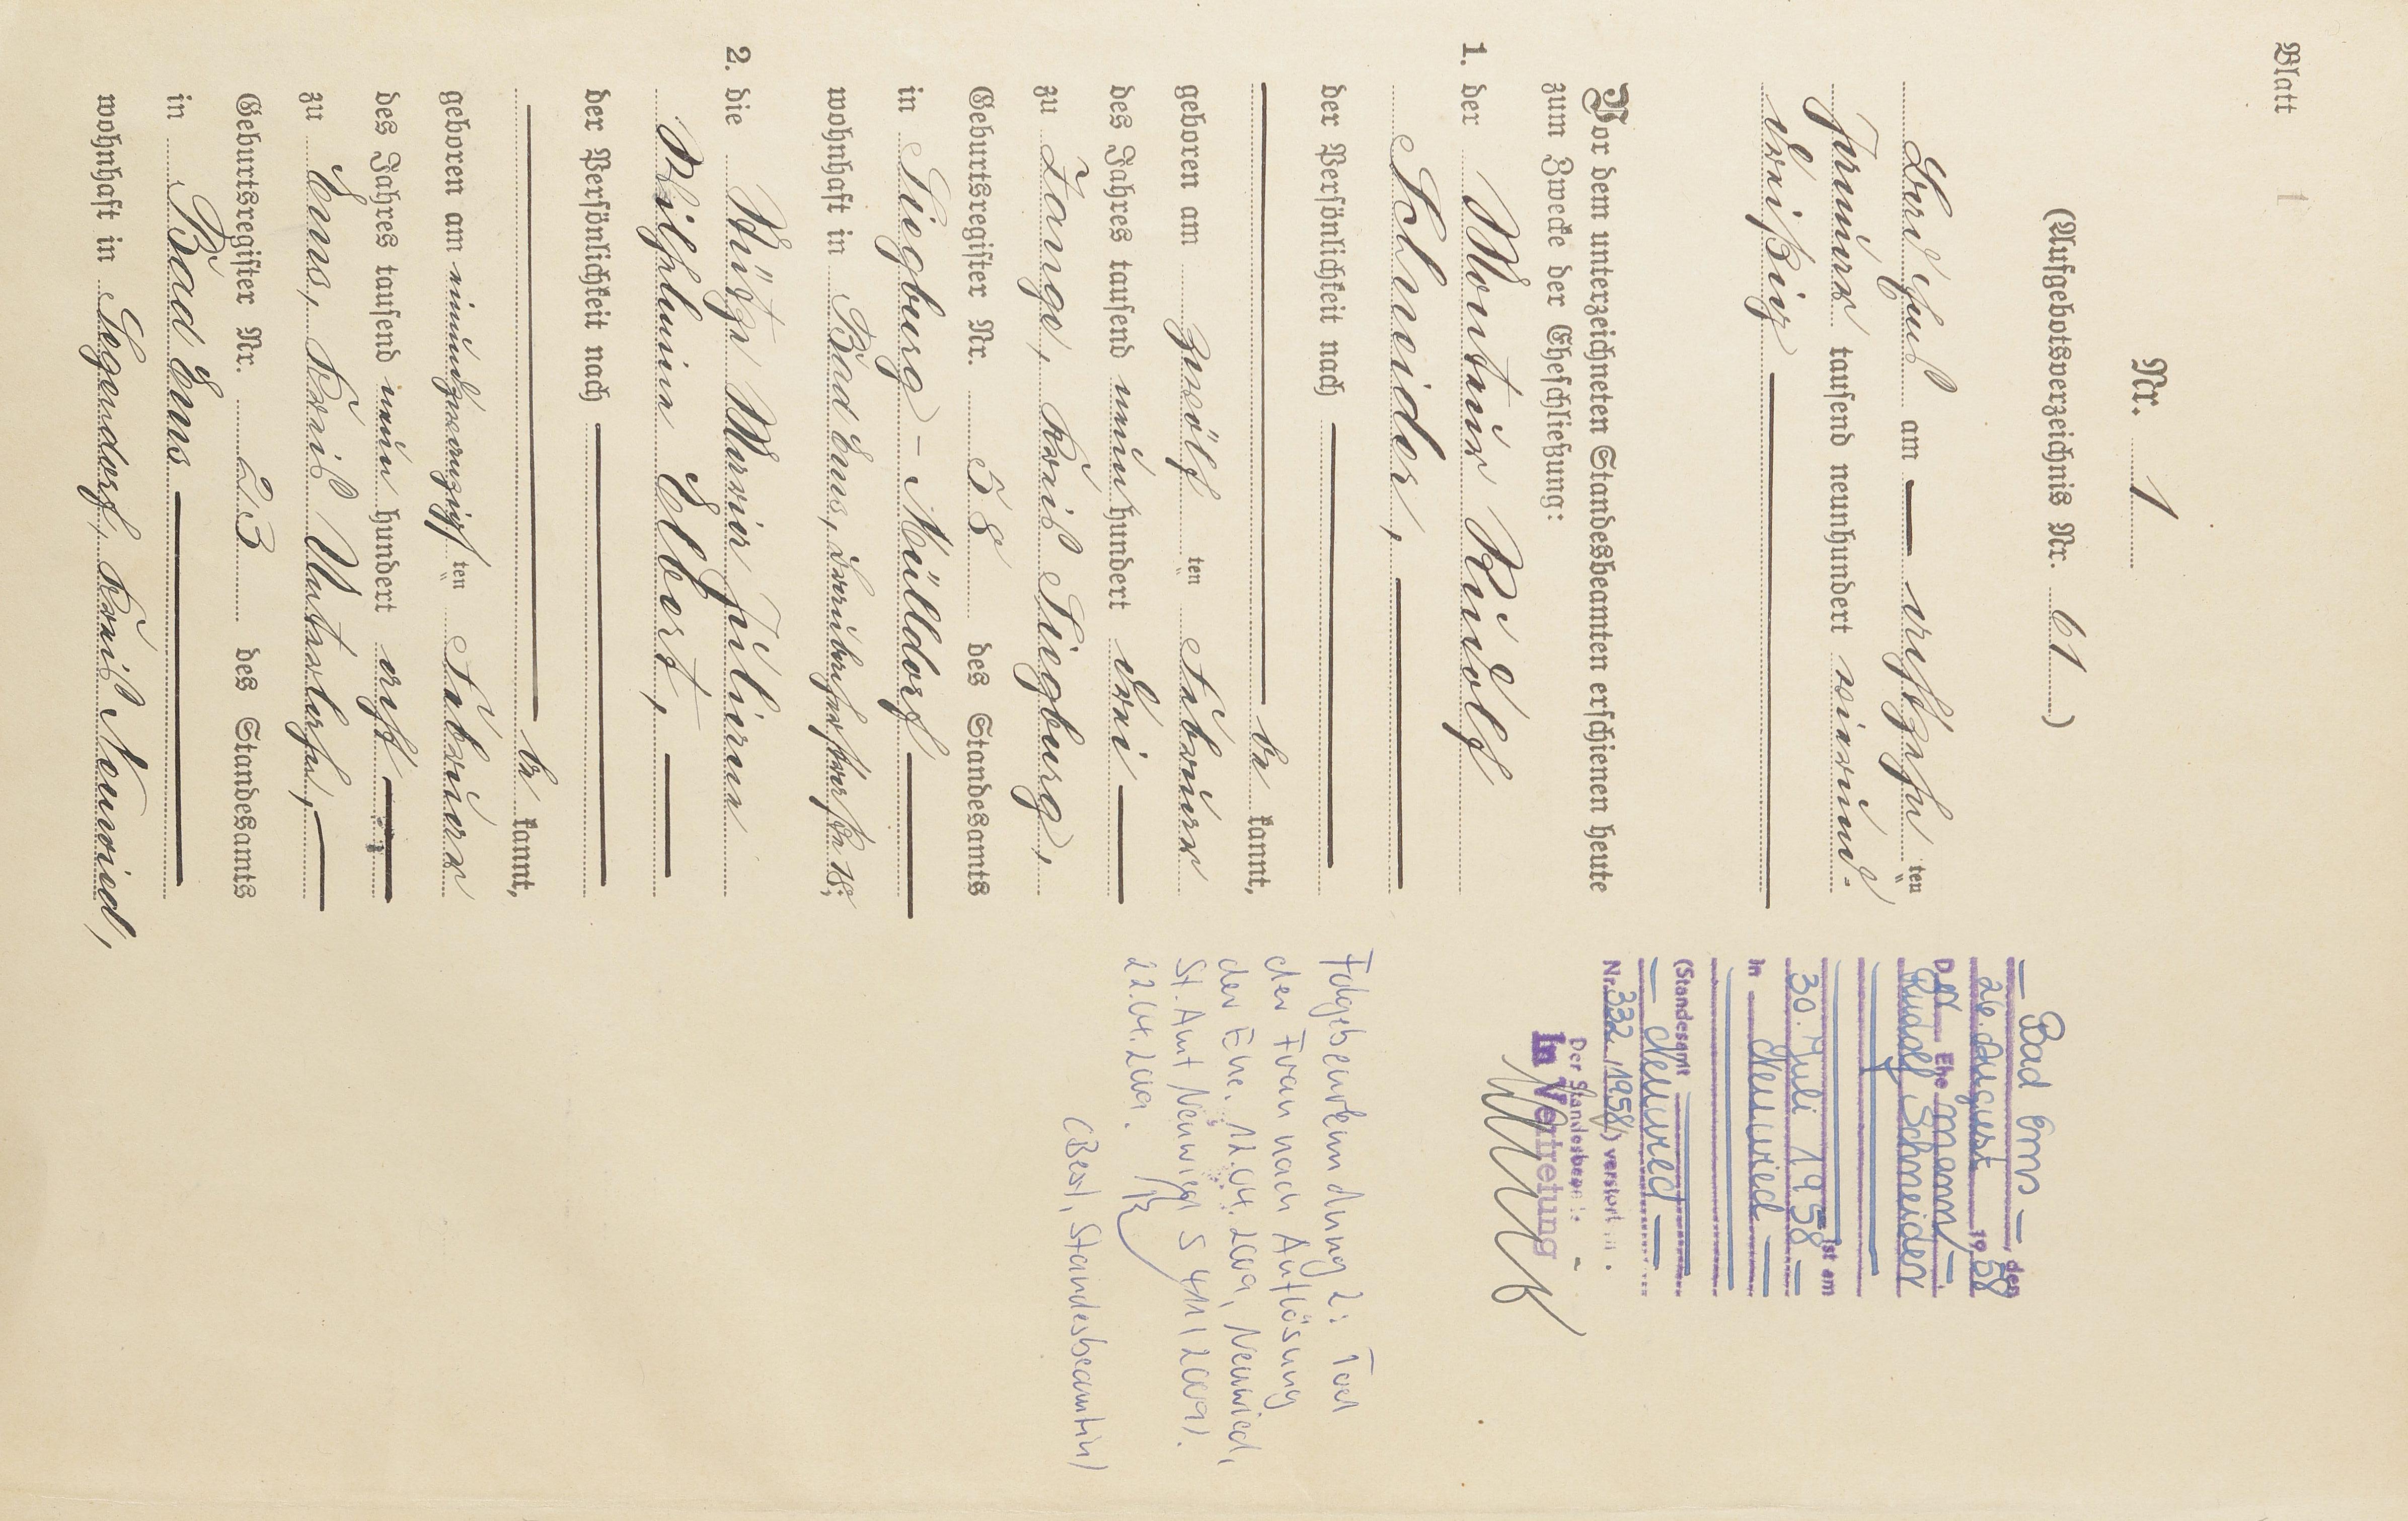 Blatt 1
Nr. 1
(Aufgebotsverzeichnis Nr. 61)
Bad Ems am — achtzehn ten
Januar tausend neunhundert vierund-
dreißig
Vor dem unterzeichneten Standesbeamten erschienen heute
zum Zwecke der Eheschließung:
1. der Monteur Rudolf
Schneider,
der Persönlichkeit nach
be kannt,
geboren am zwölf ten Februar
des Jahres tausend neun hundert drei
zu Zange, Kreis Siegburg,
Geburtsregister Nr. 58 des Standesamts
in Siegburg-Mülldorf
wohnhaft in Bad Ems, 18;
2. die Maria Juliana
Wilhelmine Elbert,
der Persönlichkeit nach
be kannt,
geboren am neunundzwanzigs ten Februar
des Jahres tausend neun hundert
zu Ems, Kreis Unterlahn,
Geburtsregister Nr. 23 des Standesamts
in Bad Ems
wohnhaft in Segendorf, Kreis Neuwied,
Bad Ems, den
26. August 1958
Der Ehemann
Rudolf Schneider
ist am
30. Juli 1958
in Neuwied
(Standesamt
Neuwied
Nr. 332/1958) verstorben.
Der Standesbeamte
In Vertretung
Folgebeurkundung 2: Tod
der Frau nach Auflösung
der Ehe. 11.04.2009, Neuwied,
St.Amt Neuwied S 411/2009.
22.04.2009.
Standesbeamtin)